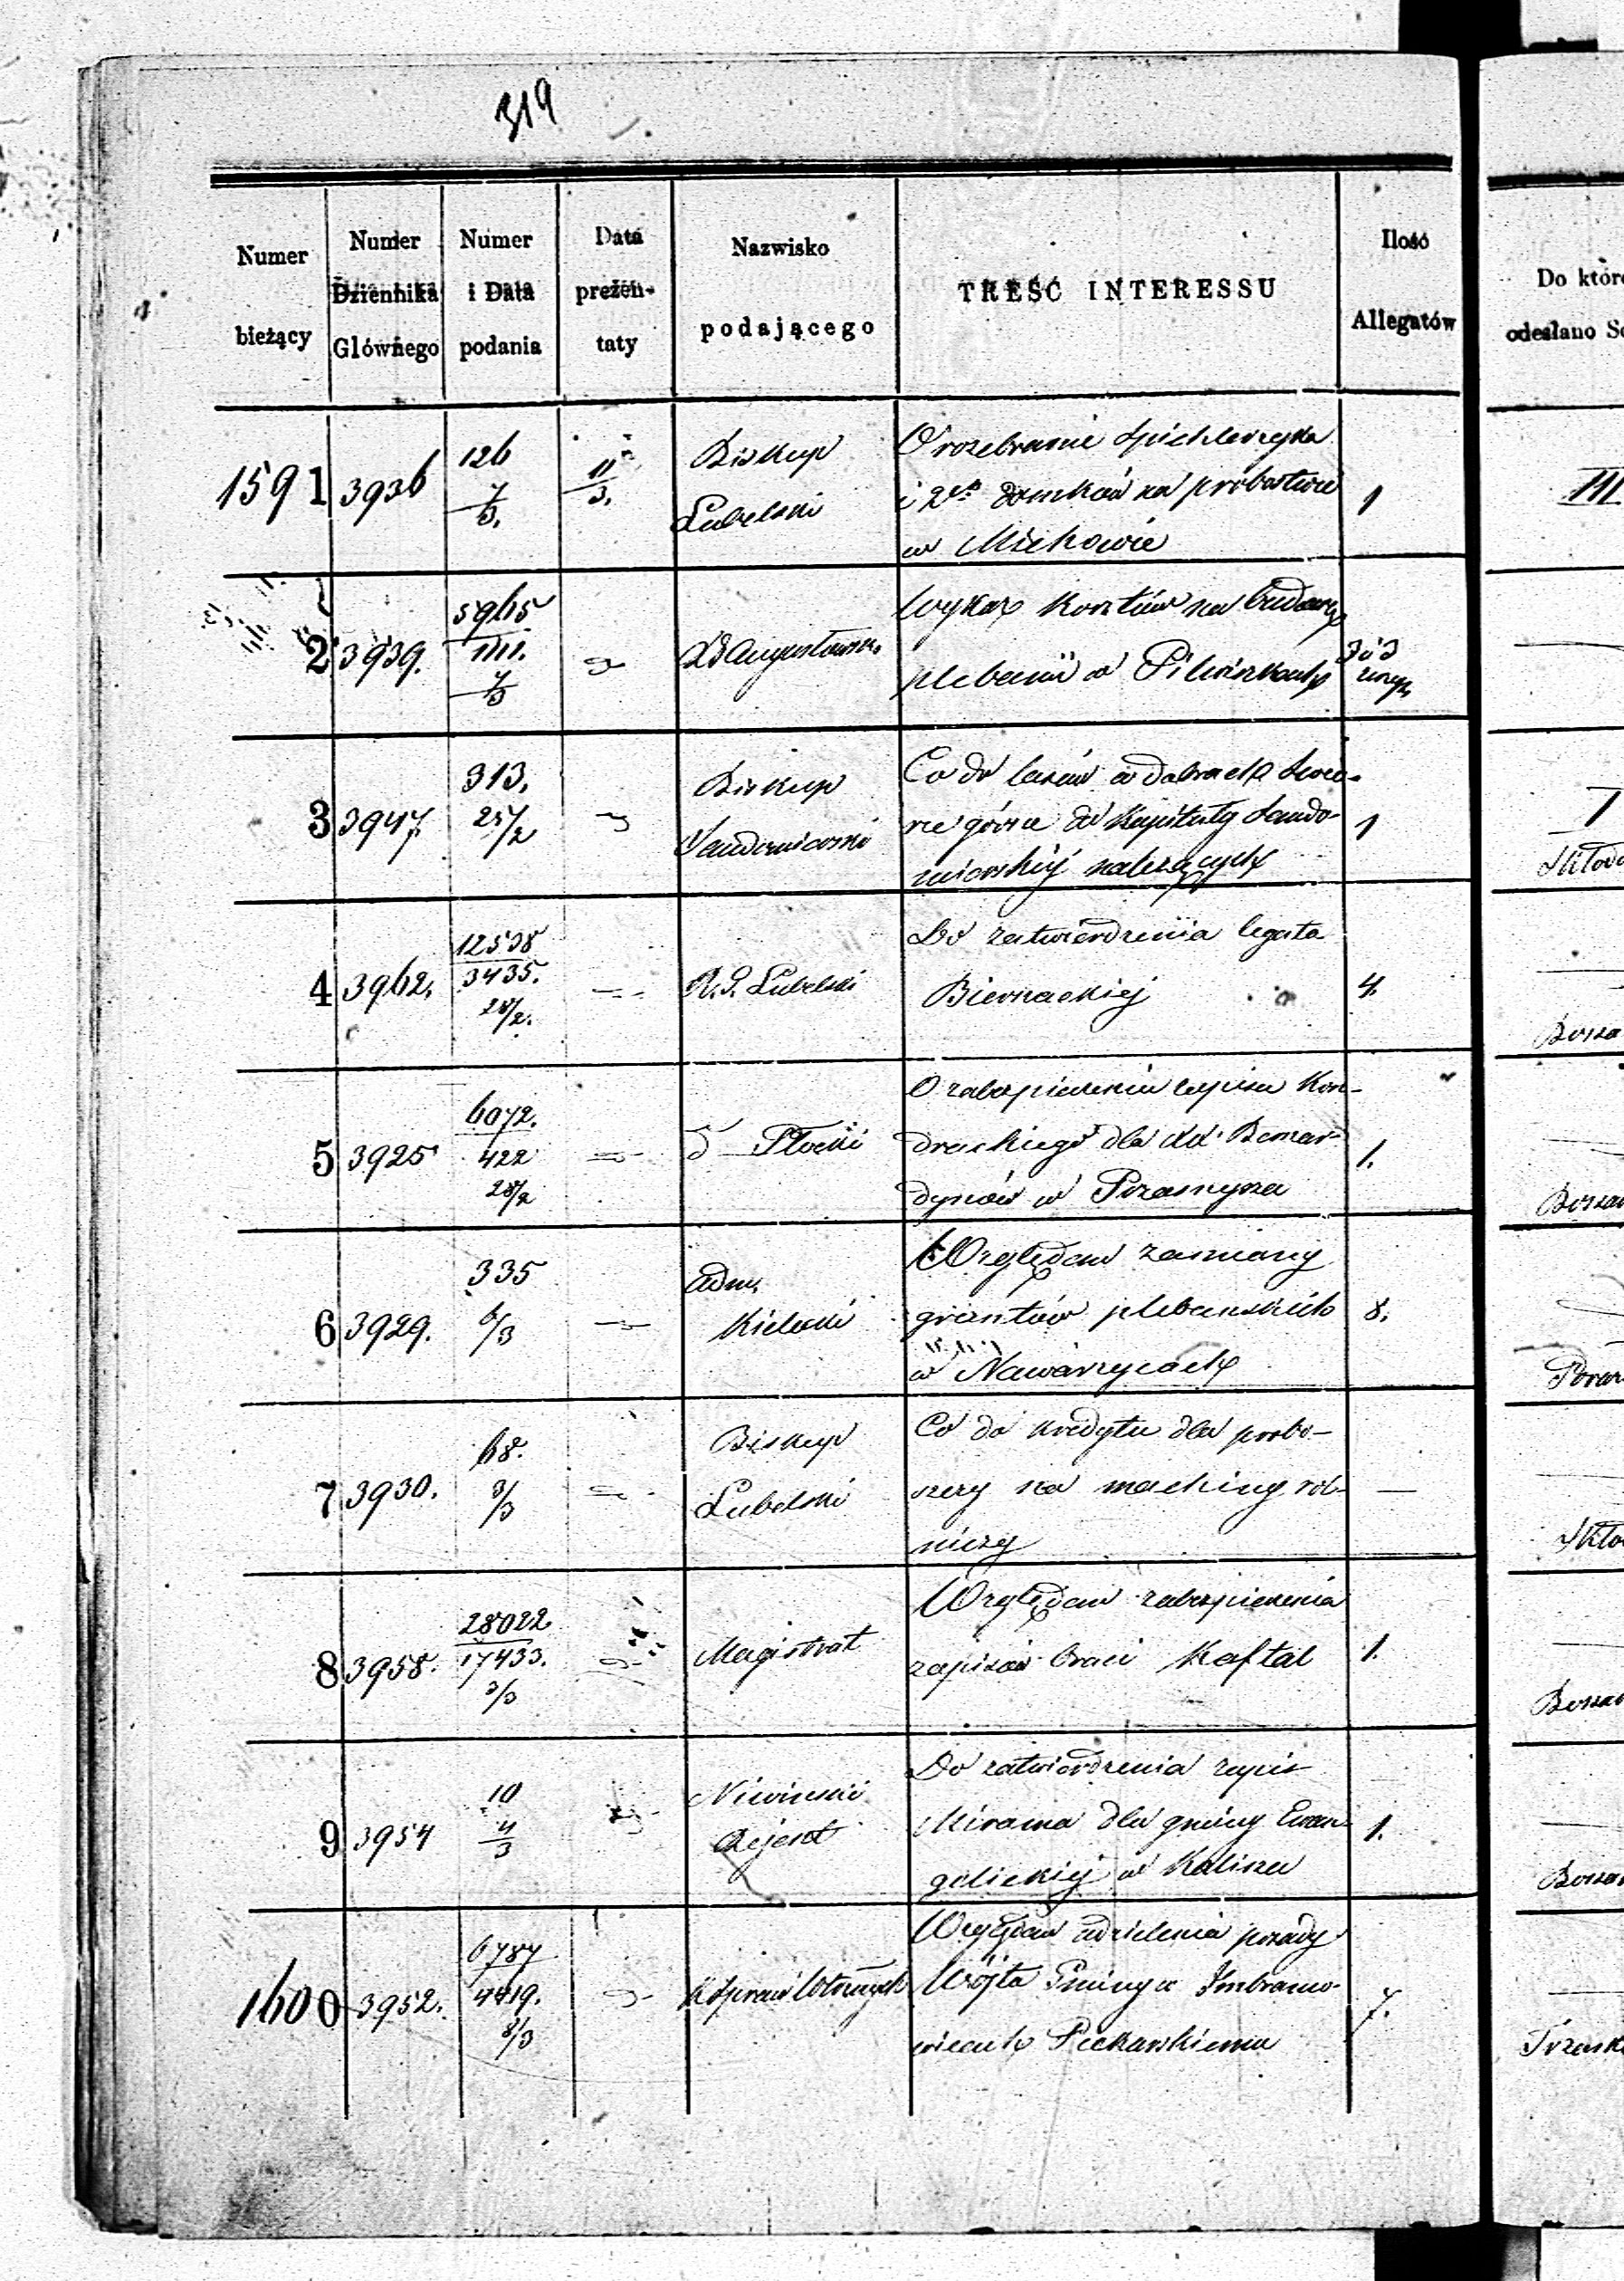 319
Numer bieżący
Numer Dziennika Głównego
Numer i Data podania
Data prezentaty
Nazwisko podającego
TREŚĆ INTERESSU
Ilość Allegatów
Do które
odesłano Se
1591 3936 126 7/3. 11/3. Biskup Lubelski
O rozebranie Spichlerzyka
i 2ch domków na probostwie
w Miechowie
1
III
2 3939. 5965 1111. 7/3
Wykaz kosztów na budowę
plebanii w Pilwiszkach
3 3947. 313. 25/2 Biskup Sandomierski
Co do lasów w dobrach
górne do Kapituły Sando-
mierskiej należących
1
I
4 3962. 12538 3435. 28/2. R. G. Lubelski
Do zatwierdzenia legata
Biernackiej
4.
5 3925 6072. 422 28/2 d Płocki
O zabezpieczeniu zapisu Kon-
drackiego dla XX Bernar-
dynów w Przasnysza
1.
6 3929. 335 6/3 Adm. Kielecki
Względem zamiany
gruntów plebańskich
w Nawarzycach
8.
7 3930. 68. 3/3 Biskup Lubelski
Co do kredytu dla probo-
szczy na machiny rol-
niczy
—
8 3958. 28022 17433. 3/3 Magistrat
Względem zabezpieczenia
zapisów braci Kaftal
1.
9 3954 10 4/3 Niwiński Rejent
Do zatwierdzenia zapis
Mirama dla gminy Ewan-
gelickiej w Kalisza
1.
1600 3952. 6787 4419. 8/3
Względem udzielenia posady
Wójta Gminy w Imbramo-
wicach Piekarskiemu
7.